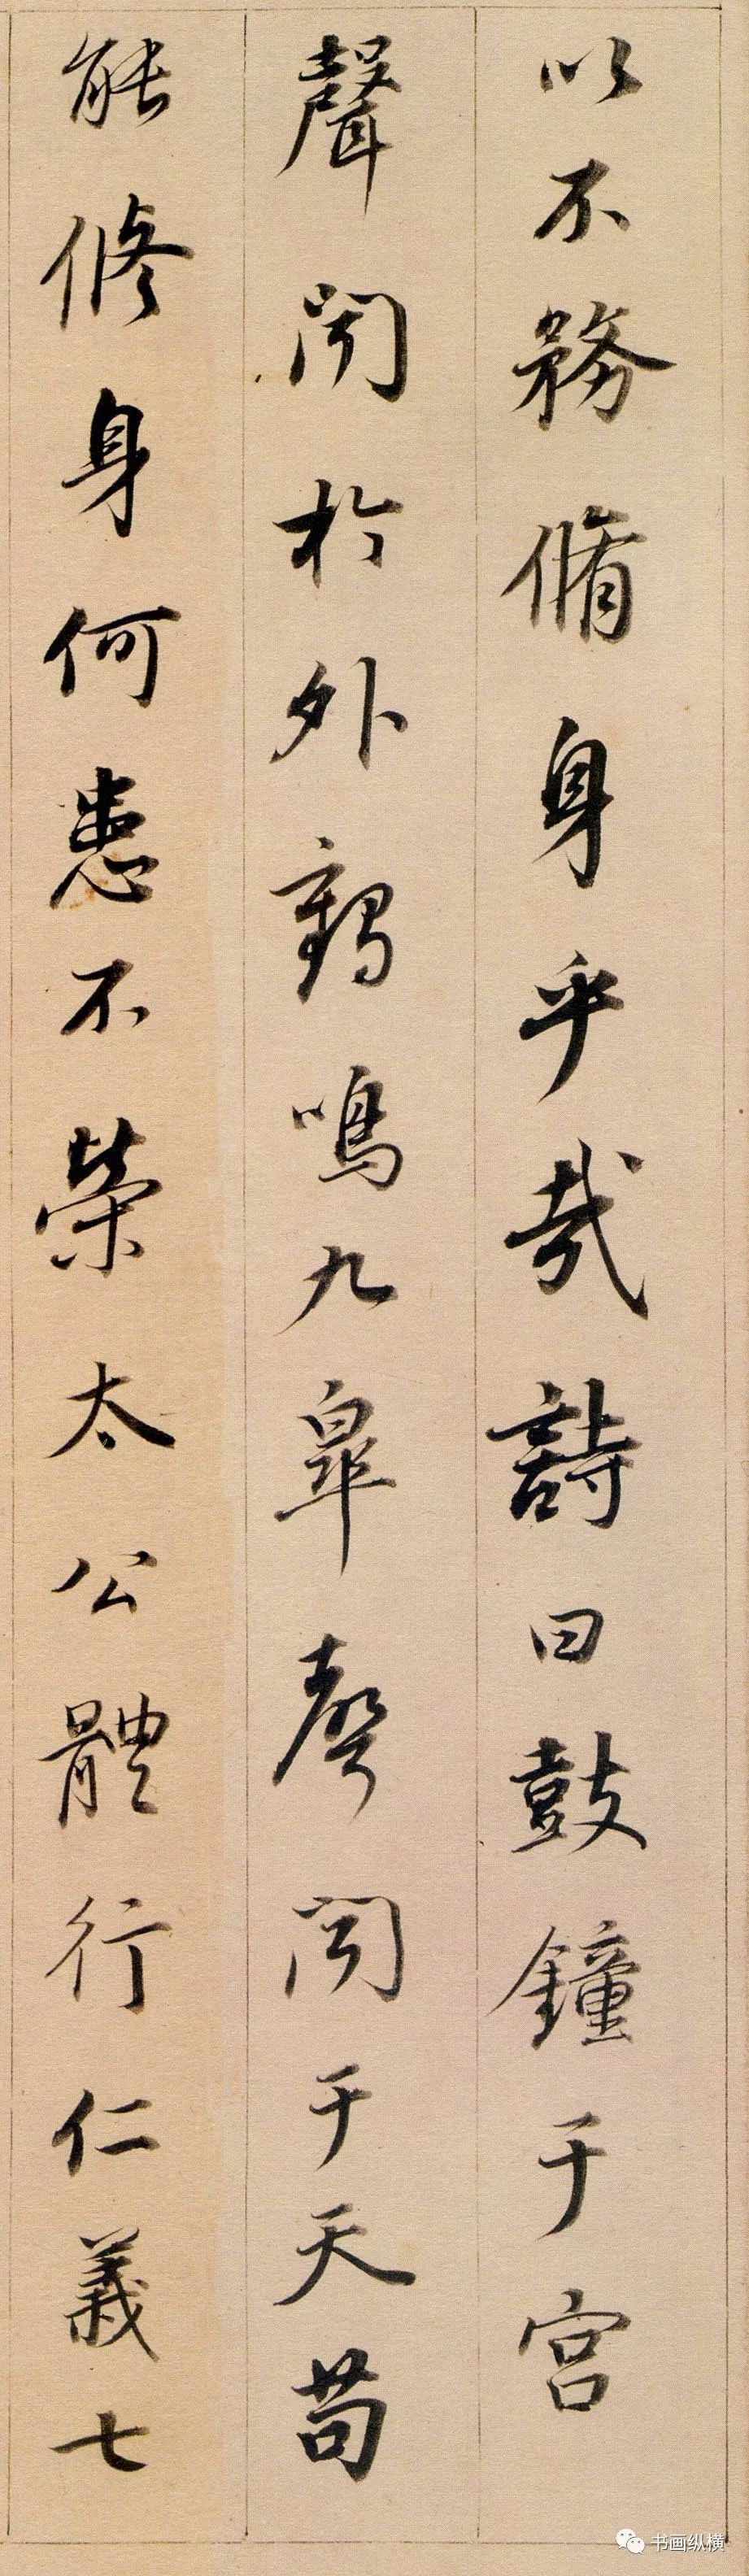 以不務脩身乎哉詩曰鼓鐘于宫
聲聞於外鶴鳴九皋聲聞于天苟
能修身何患不榮太公體行仁義七
书画纵横